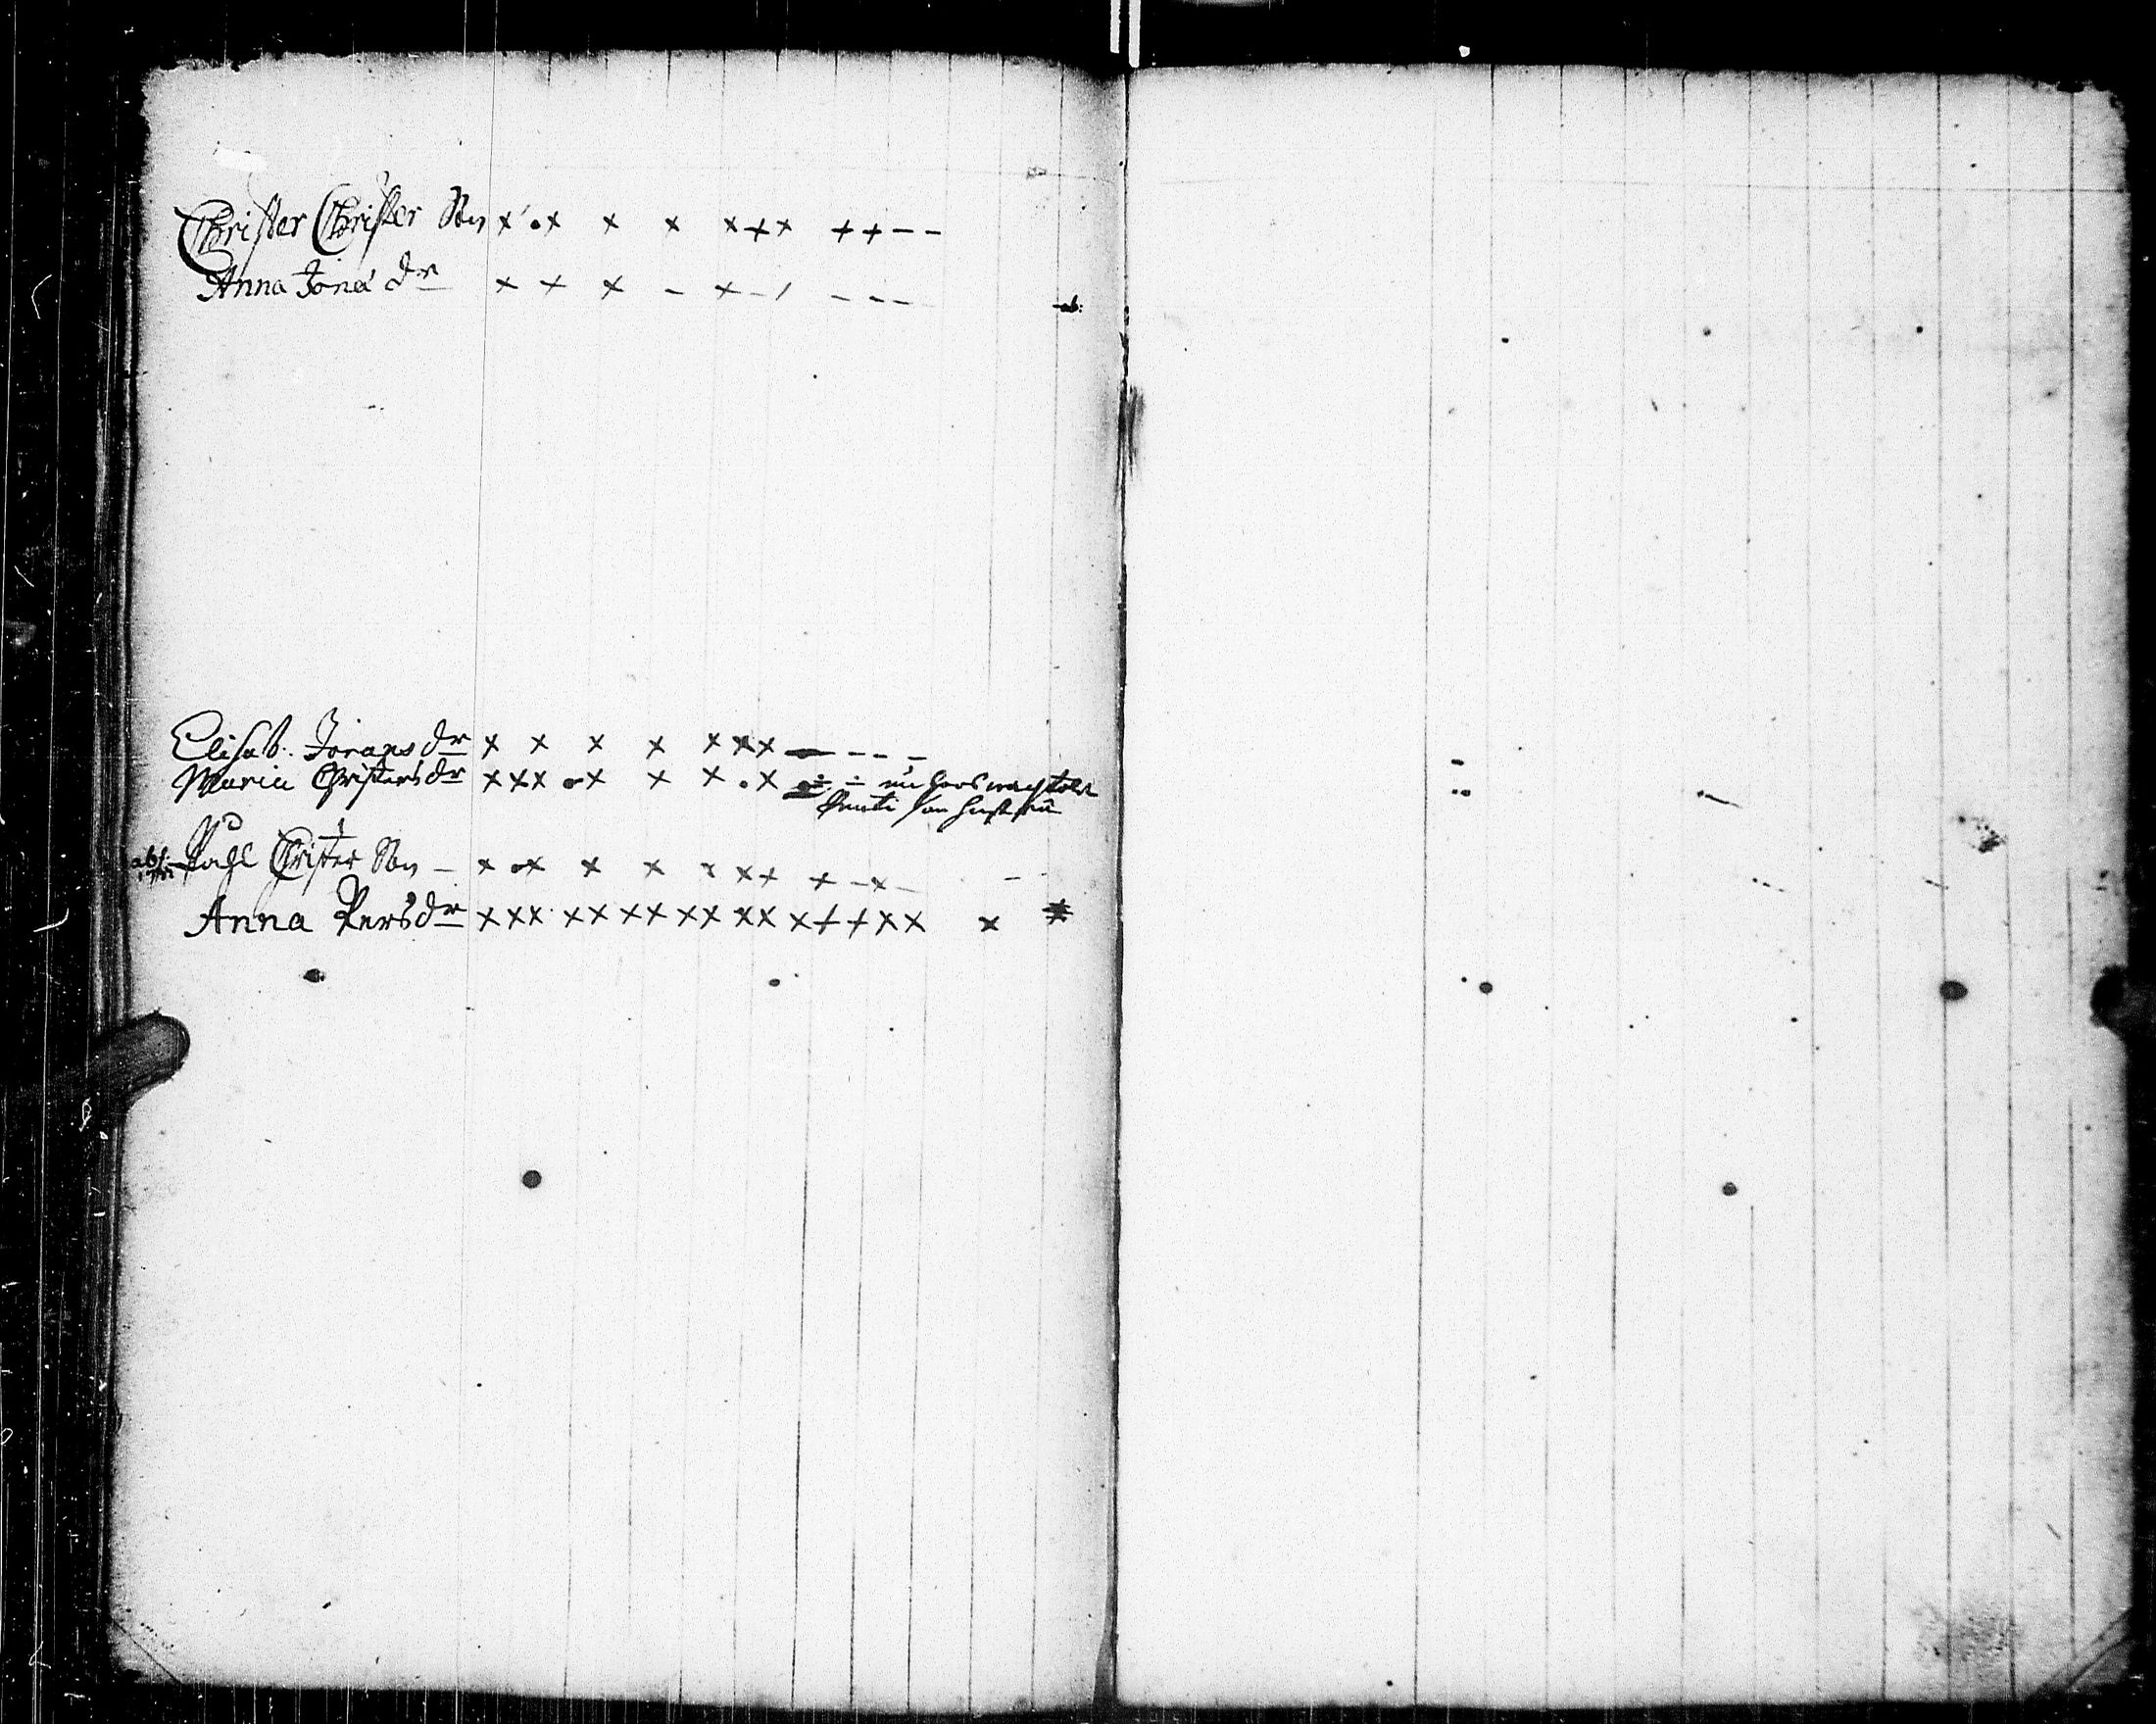 Christer Christer Son x · x x x x + x + + - -
Anna Jona dr x + x - x - / - - -
ab:
Elisab: Jorans dr x x x x x x x - - - -
Maria Christers dr x x x x x x · x ÷ ÷
abs: Pahl Christer Son - x x x x x x x + - x -
Anna Pers dr x x x x x x x x x x x x + + x x x